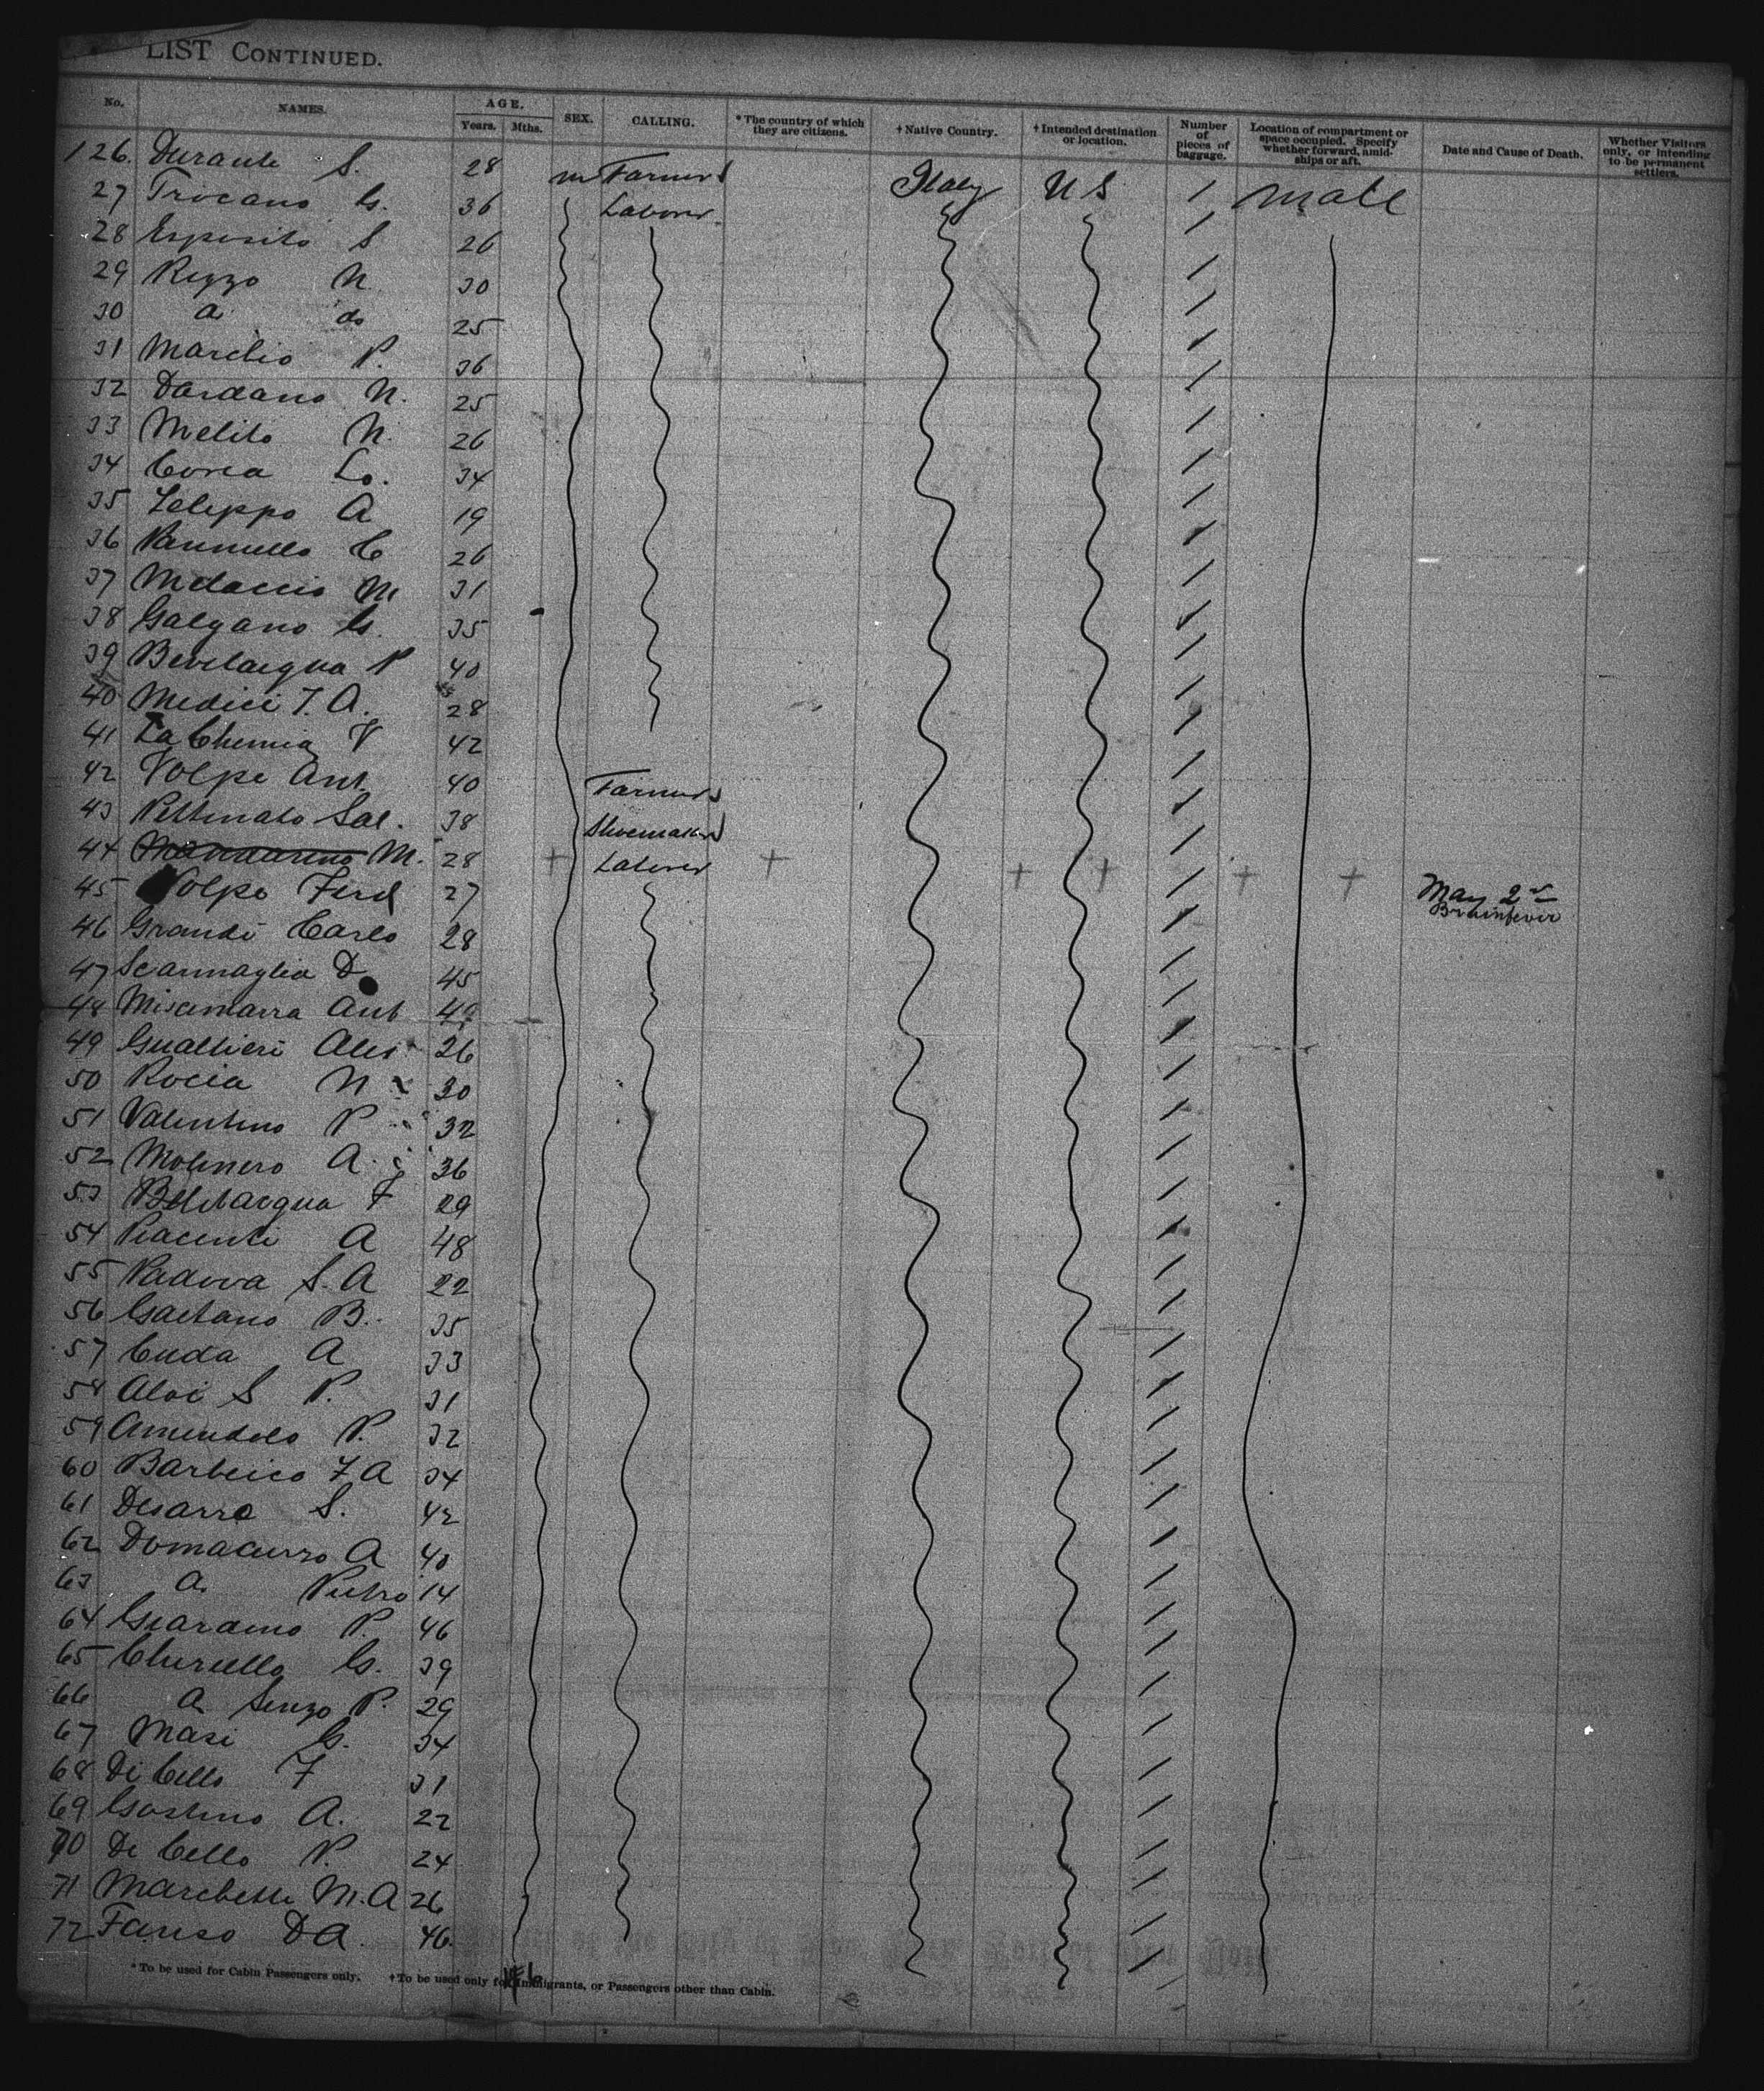 LIST CONTINUED.
No. NAMES. AGE. Years. Mths. SEX. CALLING. *The country of which they are citizens. †Native Country. †Intended destination or location. Number of pieces of baggage. Location of compartment or space occupied. Specify whether forward, amidships or aft. Date and Cause of Death. Whether Visitors only, or intending to be permanent settlers.
126. Durante S. 28 m Farmer Italy US / male
27 Trocano G. 36 Laborer /
28 Esposito S 26 /
29 Rizzo N. 30 /
30 a do 25 /
31 Marchio P. 36 /
32 Dardano N. 25 /
33 Melito N. 26 /
34 Corea Lo. 34 /
35 Feleppo A 19 /
36 C 26 /
37 M 31 /
38 Galgano G. 35 /
39 Bevelacqua P 40 /
40 Medici F. A. 28 /
41 La V 42 /
42 Volpe Ant. 40 Farmer /
43 Pettinato Sal. 38 Shoemaker /
44 M. 28 + Laborer + + + / + + May 2nd Brainfever
45 Volpe Ferd 27 /
46 Grandi Carlo 28 /
47 Scarmaglia D 45 /
48 Miscimarra Ant 49 /
49 Gualtieri Ales 26 /
50 Rocca N 30 /
51 Valentino P 32 /
52 Molinero A. 36 /
53 F 29 /
54 Piacente A 48 /
55 Padova S. A 22 /
56 Gaetano B. 35 /
57 Cuda A 33 /
58 Aloi S P. 31 /
59 Amendolo P. 32 /
60 F A 34 /
61 Desarro S. 42 /
62 A 40 /
63 a Pietro 14 /
64 Guardino P. 46 /
65 G. 39 /
66 a P. 29 /
67 Masi G. 34 /
68 Di Cello F 31 /
69 Gostino A. 22 /
70 De Cello P. 24 /
71 Marchette M. A 26 /
72 D A. 46 /
*To be used for Cabin Passengers only. †To be used only for Immigrants, or Passengers other than Cabin.